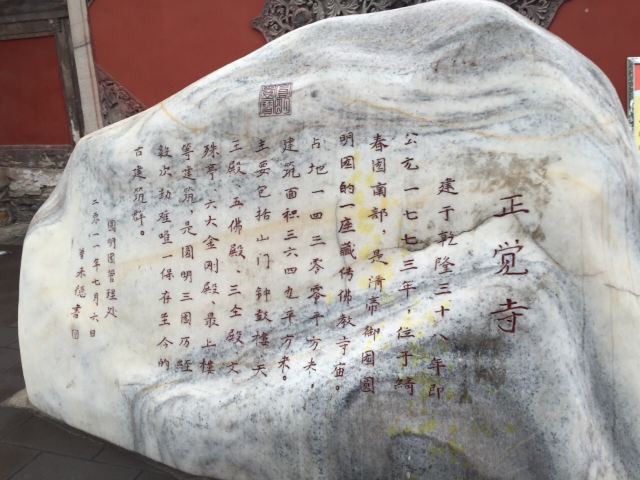 正觉寺
建于乾隆三十八年即
公元一七七三年，位于绮
春园南部，是清帝御园圆
明园的一座藏传佛教寺庙。
占地一四三〇〇平方米，
建筑面积三六四九平方米。
主要包括山门钟鼓楼天
王殿、五佛殿、三全殿文
殊亭，六大金刚殿、最上楼
等建筑，是圆明三园历经
数次劫难唯一保存至今的
古建筑群。
圆明园管理处
二〇一一年七月六日